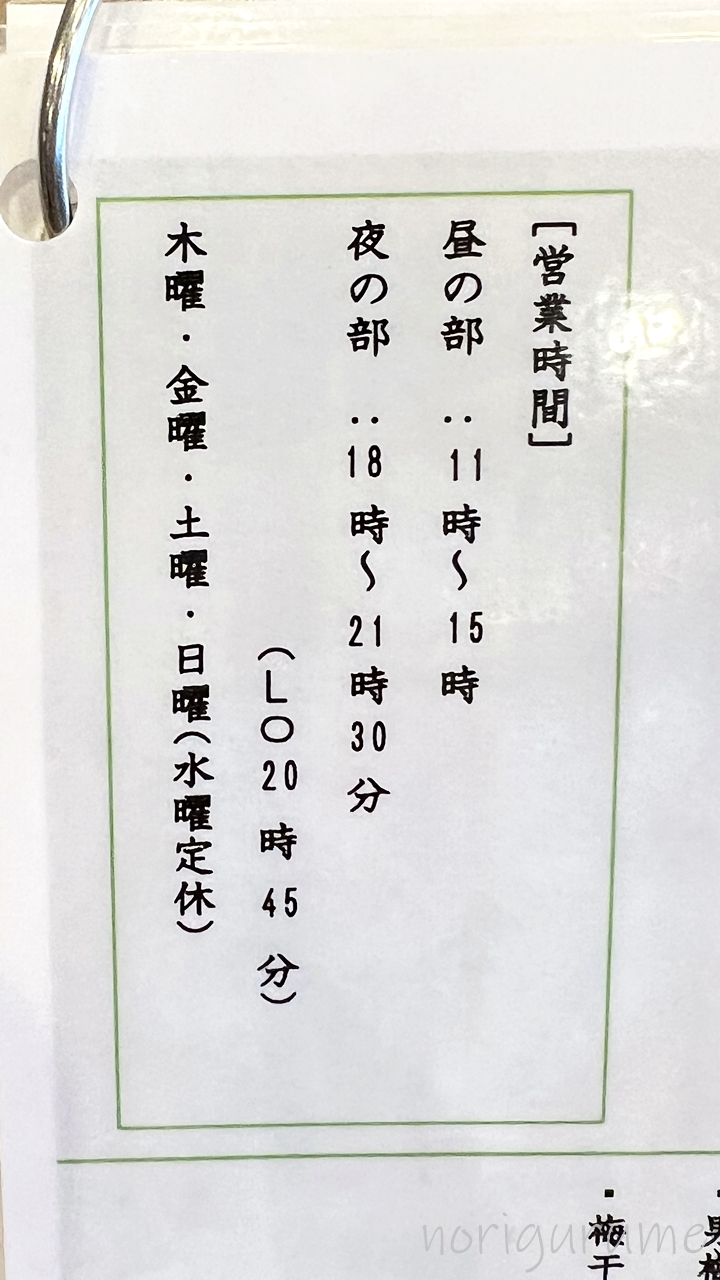 [営業時間]
昼の部：11時～15時
夜の部：18時～21時30分
（LO20時45分）
木曜・金曜・土曜・日曜（水曜定休）
・梅干
norigurume